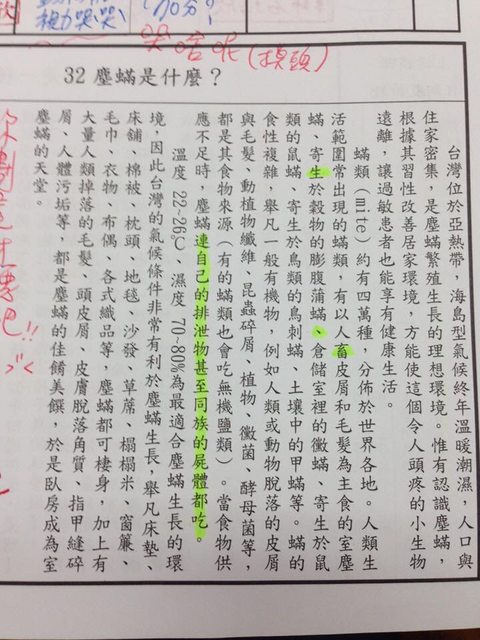 哭啥呢(摸頭)
32 塵蟎是什麼?
台灣位於亞熱帶,海島型氣候終年溫暖潮濕,人口與
住家密集,是塵蟎繁殖生長的理想環境。惟有認識塵蟎,
根據其習性改善居家環境,方能使這個令人頭疼的小生物
遠離,讓過敏患者也能享有健康生活。
蟎類(mite)約有四萬種,分佈於世界各地。人類生
活範圍常出現的蟎類,有以人畜皮屑和毛髮為主食的室塵
蟎、寄生於穀物的膨腹蒲蟎、倉儲室裡的黴蟎、寄生於鼠
類的鼠蟎、寄生於鳥類的鳥刺蟎、土壤中的甲蟎等。蟎的
食性複雜,舉凡一般有機物,例如人類或動物脫落的皮屑
與毛髮、動植物纖維、昆蟲碎屑、植物、黴菌、酵母菌等,
都是其食物來源(有的蟎類也會吃無機鹽類)。當食物供
應不足時,塵蟎連自己的排泄物甚至同族的屍體都吃。
溫度 22~26℃、濕度 70~80%為最適合塵蟎生長的環
境,因此台灣的氣候條件非常有利於塵蟎生長,舉凡床墊、
床舖、棉被、枕頭、地毯、沙發、草蓆、榻榻米、窗簾、
毛巾、衣物、布偶、各式織品等,塵蟎都可棲身,加上有
大量人類掉落的毛髮、頭皮屑、皮膚脫落角質、指甲縫碎
屑、人體污垢等,都是塵蟎的佳餚美饌,於是臥房成為室
塵蟎的天堂。